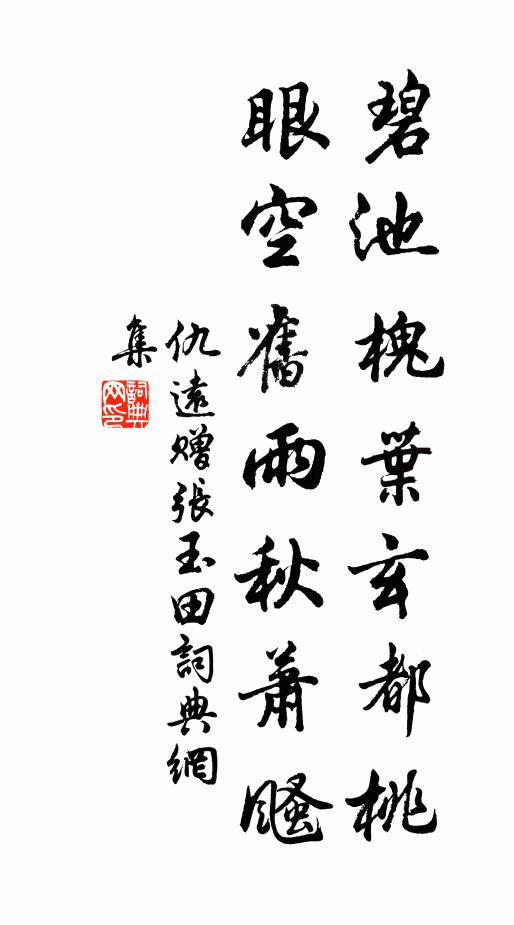 碧池槐葉玄都桃
眼空舊雨秋蕭騷
仇遠贈張玉田詞典網
集
詞典
网印